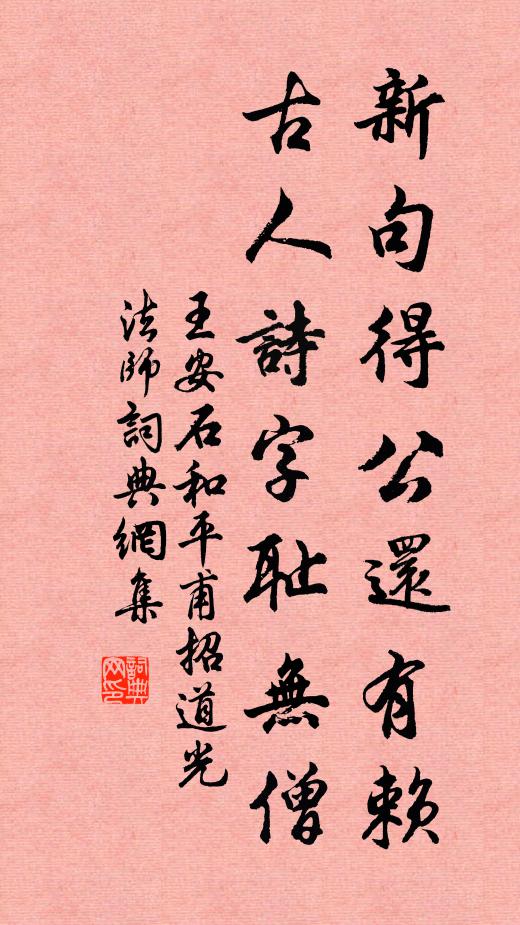 新句得公還有賴
古人詩字耻無僧
王安石和平甫招道光
法師詞典網集
詞典
网印